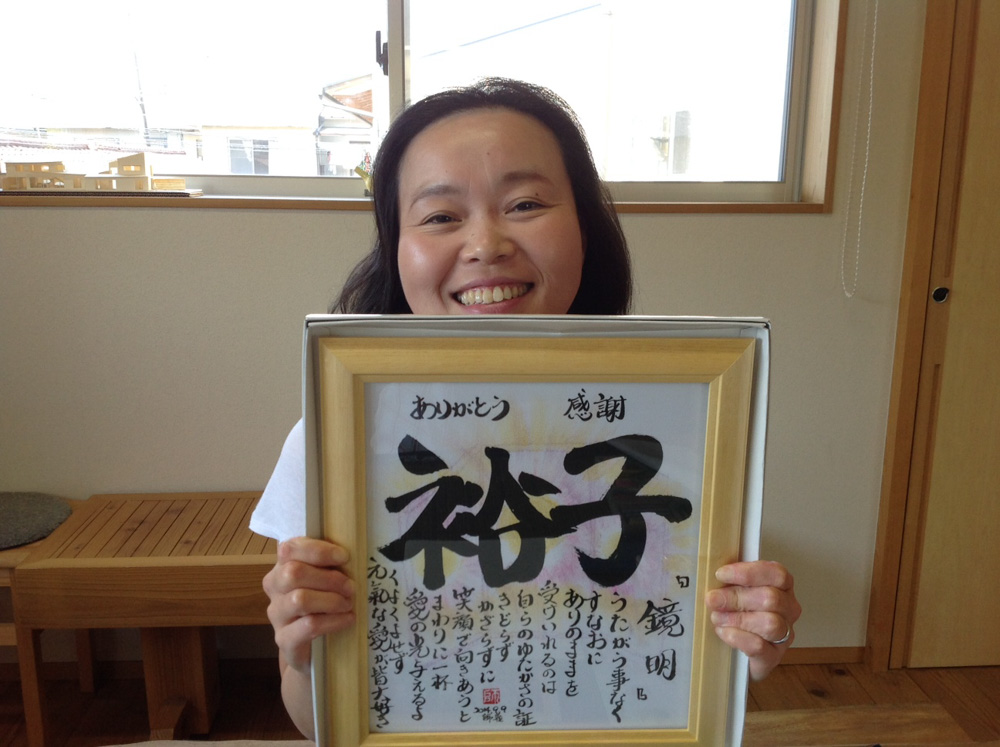 ありがとう 感謝
裕子
「鏡明」
うたがう事なく
すなおに
ありのままを
受けいれるのは
自らのゆたかさの証
きどらず
かざらずに
笑顔で向きあうと
まわりに一杯
愛の光与えるよ
くよくよせず
元氣な愛が皆大好き
2014.9.9